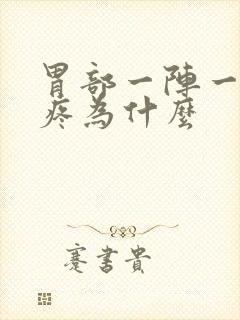 胃部一陣一
疼為什麼
蹇書貴